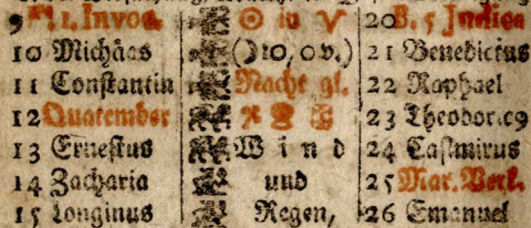 9 1. Invoc. ☉ in ♈ 20 B. 5 Judica
10 Michäas (☽ 10, 0 v.) 21 Benedictus
11 Constantin Nacht gl. 22 Raphael
12 Quatember 23 Theodor.
13 Ernestus Wind 24 Casimirus
14 Zacharia und 25 Mar. Verk.
15 Longinus Regen, 26 Emanuel